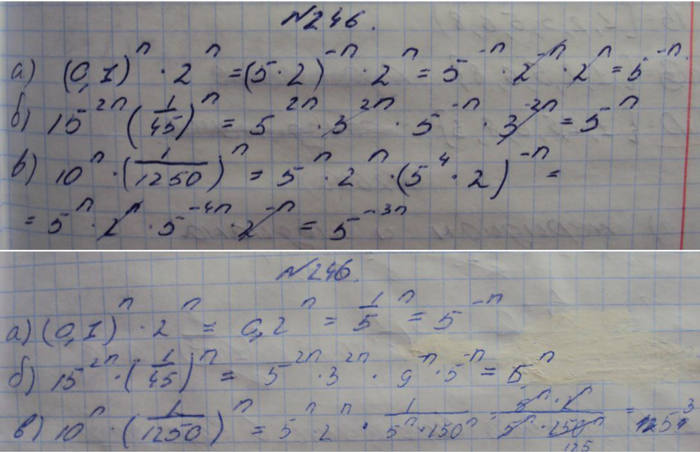 №246.
а) (0,1)ⁿ · 2ⁿ = (5·2)⁻ⁿ · 2ⁿ = 5⁻ⁿ · 2⁻ⁿ · 2ⁿ = 5⁻ⁿ.
б) 15²ⁿ (1/45)ⁿ = 5²ⁿ · 3²ⁿ · 5⁻ⁿ · 3⁻²ⁿ = 5ⁿ
в) 10ⁿ · (1/1250)ⁿ = 5ⁿ · 2ⁿ · (5⁴ · 2)⁻ⁿ =
= 5ⁿ · 2ⁿ · 5⁻⁴ⁿ · 2⁻ⁿ = 5⁻³ⁿ
№246.
а) (0,1)ⁿ · 2ⁿ = 0,2ⁿ = 1/5ⁿ = 5⁻ⁿ
б) 15²ⁿ · (1/45)ⁿ = 5²ⁿ · 3²ⁿ · 9⁻ⁿ · 5⁻ⁿ = 5ⁿ
в) 10ⁿ · (1/1250)ⁿ = 5ⁿ 2ⁿ ·